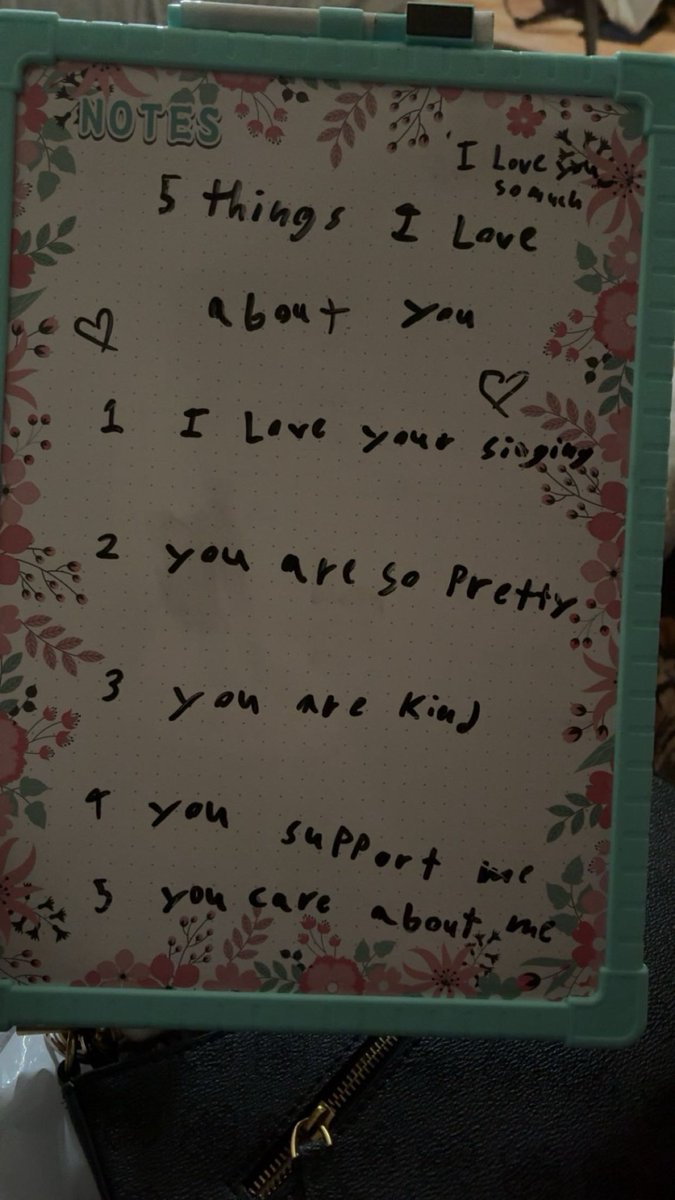 NOTES
I Love you
so much
5 things I Love
about you
1 I Love your singing
2 you are so Pretty
3 you are Kind
4 you support me
5 you care about me